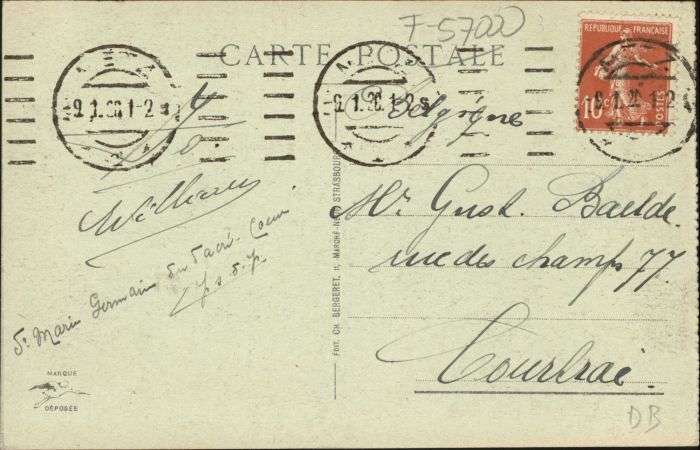 F-57000
CARTE POSTALE
RÉPUBLIQUE FRANÇAISE
10c
POSTES
9.1.20.1-2 s
9.1.20.1-2 s
9.1.20.1-2 s
Belgique
William
Mr. Gust. Baelde
rue des champs 77
Courtrai.
Sr Marie Germain du Sacré-Coeur
p.s.d.p.
Édit. CH. BERGERET, 11, MARCHÉ-NEUF STRASBOURG
MARQUE
DÉPOSÉE
DB